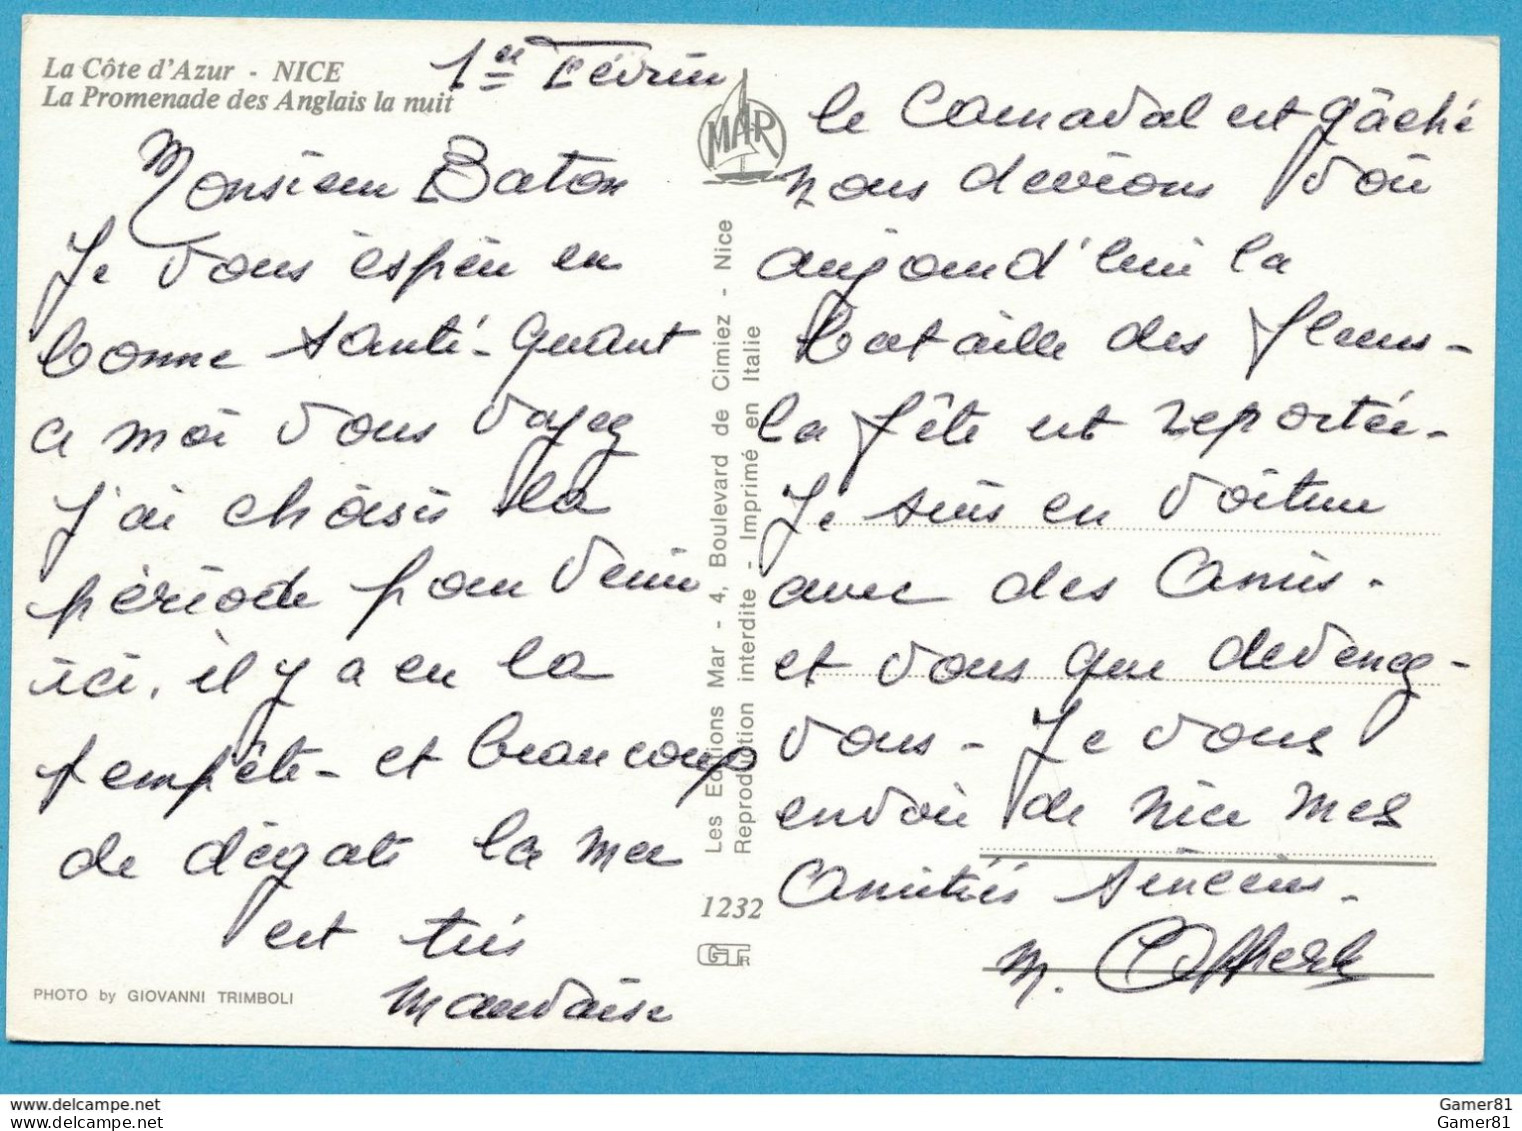 La Côte d'Azur - NICE
La Promenade des Anglais la nuit
1er Février
Monsieur Baton
Je vous espère en
bonne santé - quant
a moi vous voyez
J'ai choisis la
période pour venir
ici, il y a eu la
tempête - et beaucoup
de dégats la mer
est très
mauvaise
PHOTO by GIOVANNI TRIMBOLI
MAR
Les Editions Mar - 4, Boulevard de Cimiez - Nice
Reproduction interdite - Imprimé en Italie
1232
GTR
le Carnaval est gâché
nous devions voir
aujourd'hui la
bataille des fleurs -
la fête est reportée -
Je suis en voiture
avec des amis -
et vous que devenez -
vous - Je vous
envoie de Nice mes
amitiés sincères -
M.
Gamer81
Gamer81